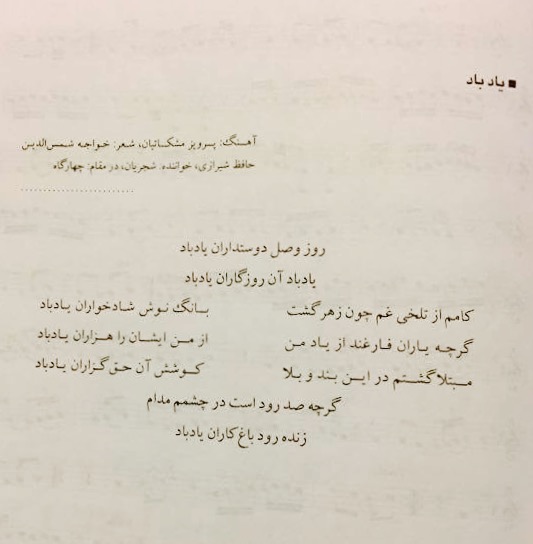 ■ یاد باد
آهنگ: پرویز مشکاتیان، شعر: خواجه شمس‌الدین
حافظ شیرازی، خواننده: شجریان، در مقام: چهارگاه
........................
روز وصل دوستداران یادباد
یادباد آن روزگاران یادباد
کامم از تلخی غم چون زهر گشت بانگ نوش شادخواران یادباد
گرچه یاران فارغند از یاد من از من ایشان را هزاران یادباد
مبتلا گشتم در این بند و بلا کوشش آن حق‌گزاران یادباد
گرچه صد رود است در چشمم مدام
زنده رود باغ‌کاران یادباد